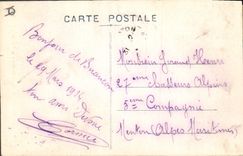 CARTE POSTALE
Bonjour de Briançon
le 19 Mars 1914
Ton ami
Monsieur Giraud Henri
27ème Chasseurs Alpins
5ème Compagnie
Menton Alpes Maritimes